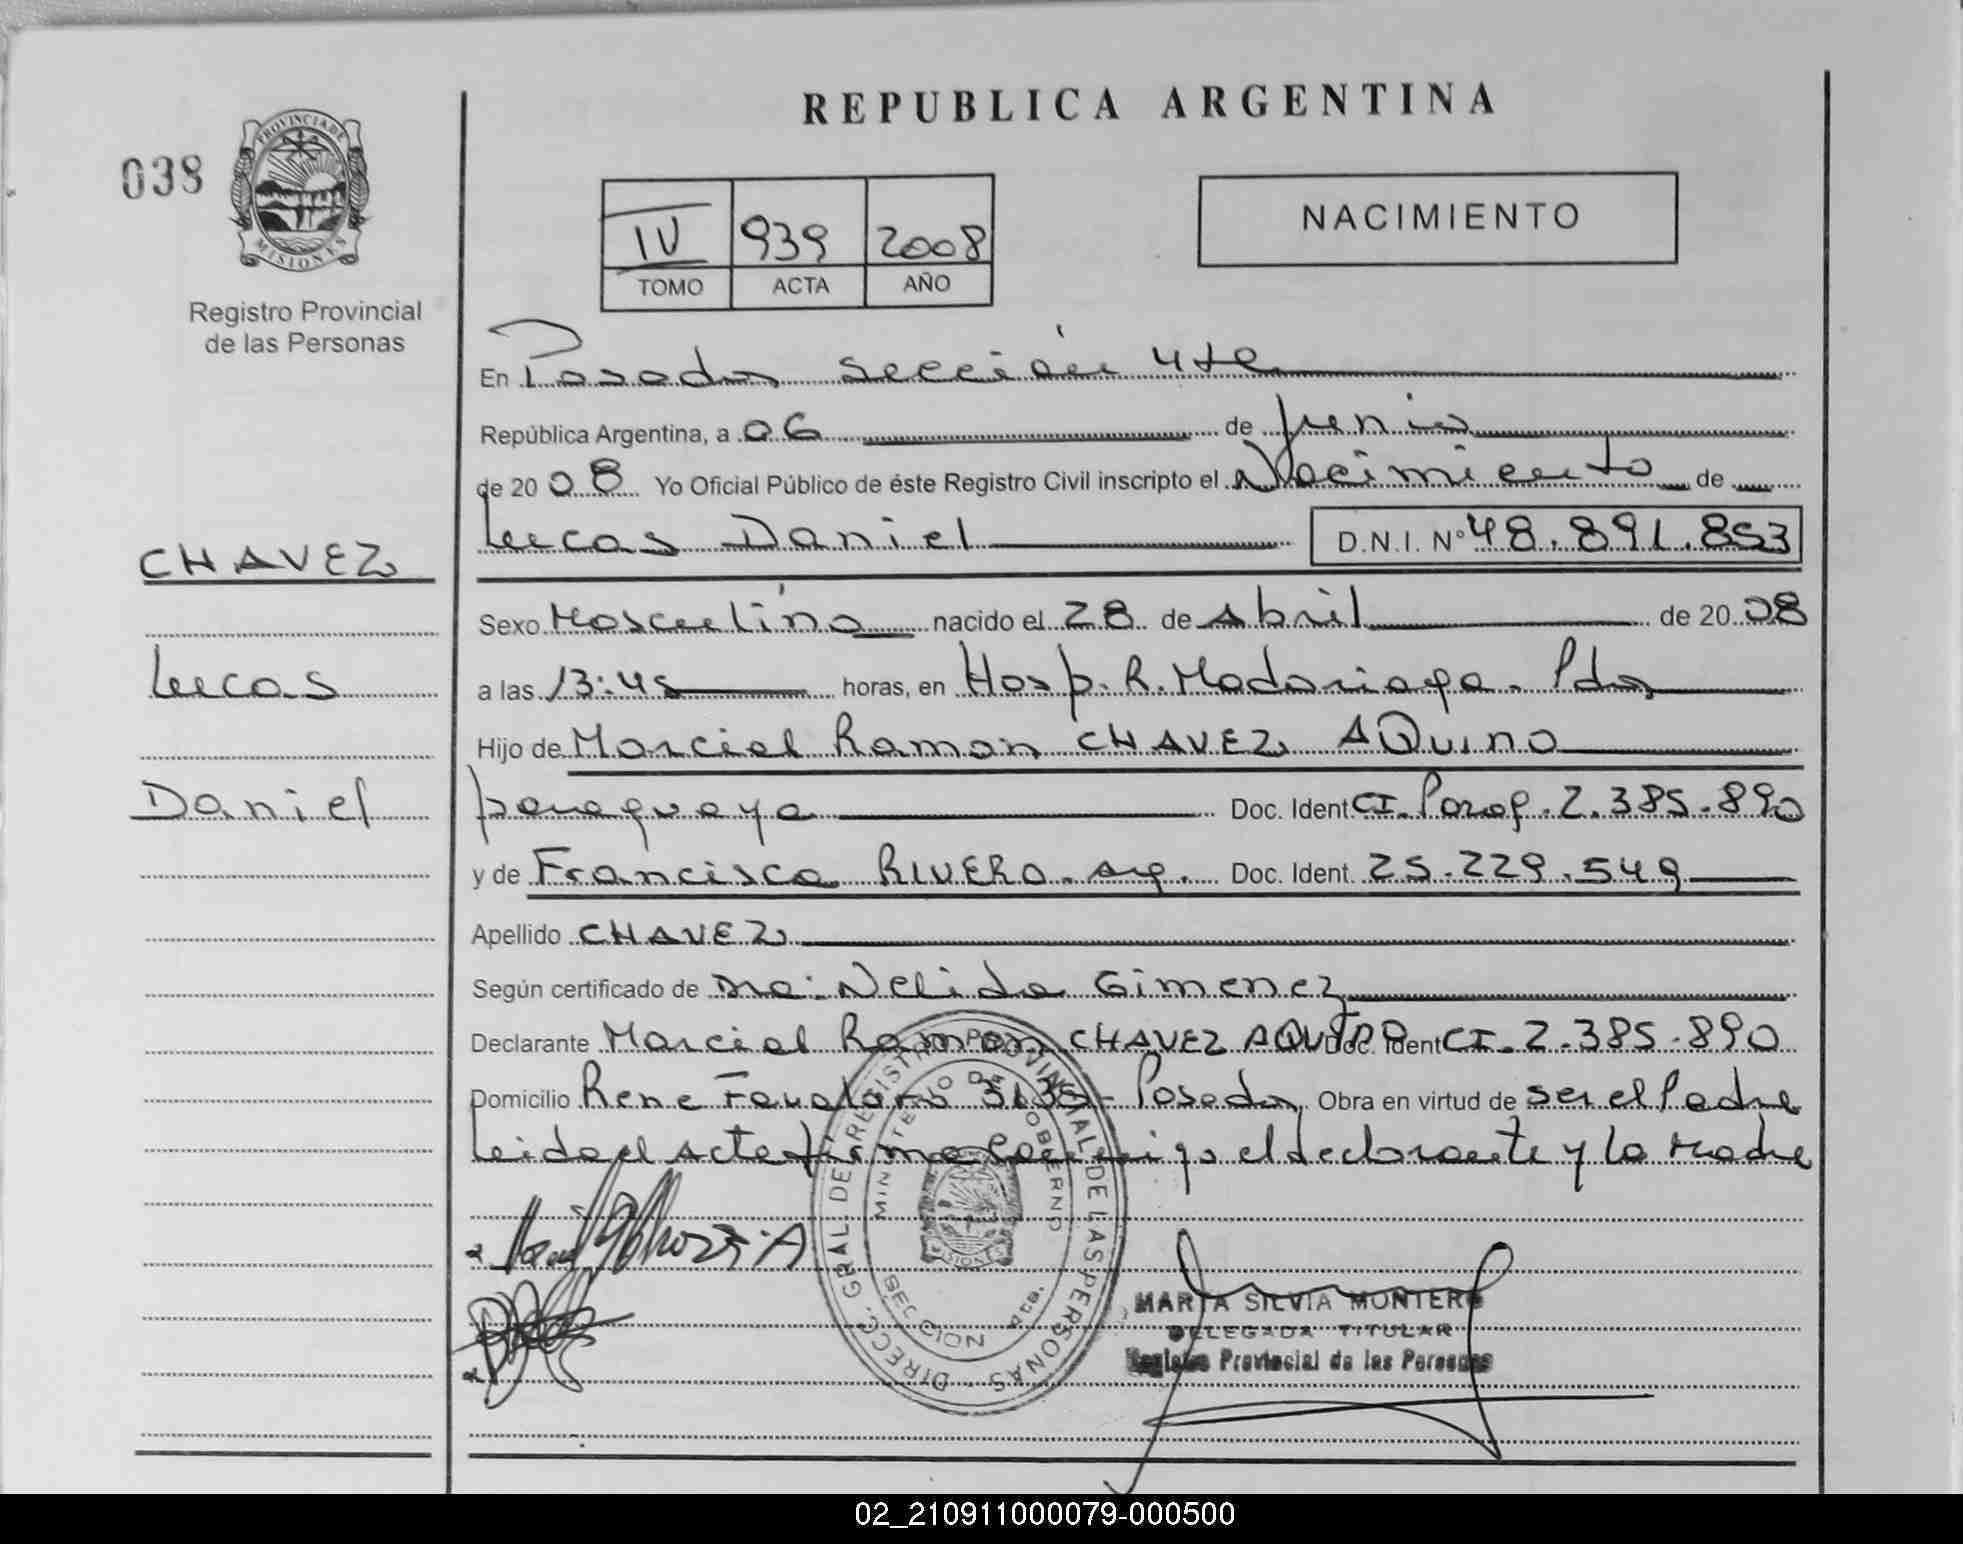 REPUBLICA ARGENTINA
038
PROVINCIA DE
MISIONES
Registro Provincial
de las Personas
IV 939 2008
TOMO ACTA AÑO
NACIMIENTO
CHAVEZ
Lucas
Daniel
En Posadas sección 4ta
República Argentina, a 06 de junio
de 2008 Yo Oficial Público de éste Registro Civil inscripto el Nacimiento de
Lucas Daniel D.N.I. Nº 48.891.853
Sexo Masculino nacido el 28 de Abril de 2008
a las 13:45 horas, en Hosp. R. Madariaga. Pdas
Hijo de Marcial Ramon CHAVEZ AQuino
paraguaya Doc. Ident CI. Parag. 2.385.890
y de Francisca RIVERO. arg. Doc. Ident. 25.229.549
Apellido CHAVEZ
Según certificado de Dra: Nelida Gimenez
Declarante Marcial Ramon CHAVEZ AQUINO Doc. Ident CI. 2.385.890
Domicilio Rene Favaloro 3135 - Posadas Obra en virtud de ser el Padre
Leida el acta firma conmigo el declarante y la madre
DIRECC. GRAL. DEL REGISTRO PROVINCIAL DE LAS PERSONAS
MINISTERIO DE GOBIERNO
SECCION 4ta.
MARIA SILVIA MONTERO
DELEGADA TITULAR
Registro Provincial de las Personas
02_210911000079-000500